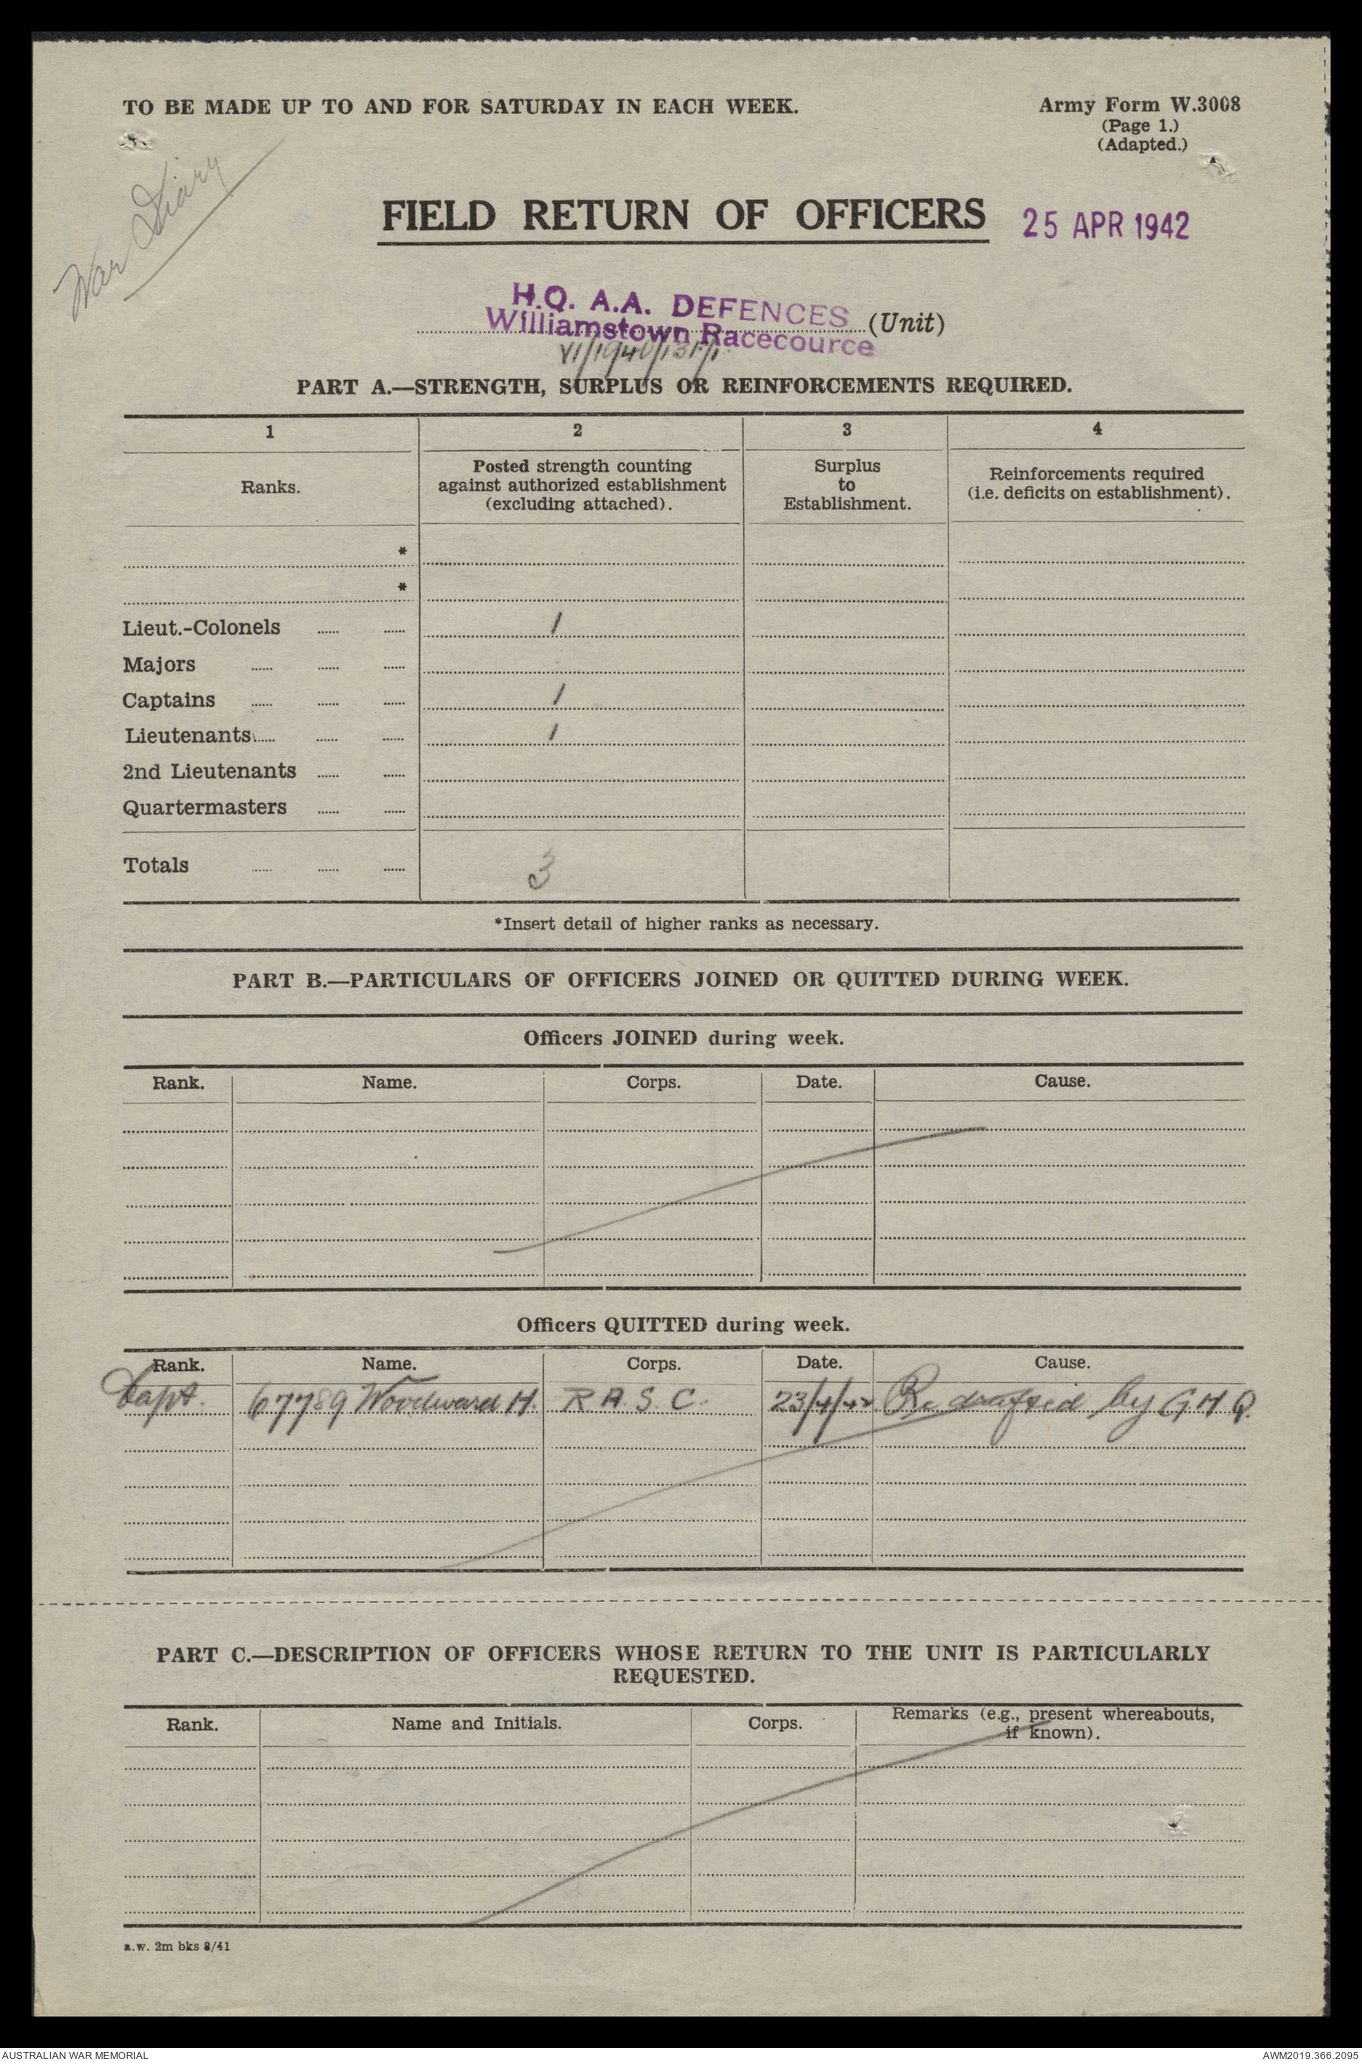 TO BE MADE UP TO AND FOR SATURDAY IN EACH WEEK.
Army Form W.3008
(Page 1.)
(Adapted.)
War Diary
FIELD RETURN OF OFFICERS
25 APR 1942
H.Q. A.A. DEFENCES
Williamstown Racecource
(Unit)
VI/1940/13F/1
PART A.—STRENGTH, SURPLUS OR REINFORCEMENTS REQUIRED.
1 2 3 4
Ranks.
Posted strength counting against authorized establishment (excluding attached).
Surplus to Establishment.
Reinforcements required (i.e. deficits on establishment).
*
*
Lieut.-Colonels ...... ...... 1
Majors ...... ...... ......
Captains ...... ...... ...... 1
Lieutenants ...... ...... ...... 1
2nd Lieutenants ...... ......
Quartermasters ...... ......
Totals ...... ...... ...... 3
*Insert detail of higher ranks as necessary.
PART B.—PARTICULARS OF OFFICERS JOINED OR QUITTED DURING WEEK.
Officers JOINED during week.
Rank. Name. Corps. Date. Cause.
Officers QUITTED during week.
Rank. Name. Corps. Date. Cause.
Capt. 67789 Woodward H. R.A.S.C. 23/4/42 Re drafted by G.H.Q.
PART C.—DESCRIPTION OF OFFICERS WHOSE RETURN TO THE UNIT IS PARTICULARLY
REQUESTED.
Rank. Name and Initials. Corps. Remarks (e.g., present whereabouts, if known).
a.w. 2m bks 8/41
AUSTRALIAN WAR MEMORIAL
AWM2019.366.2095